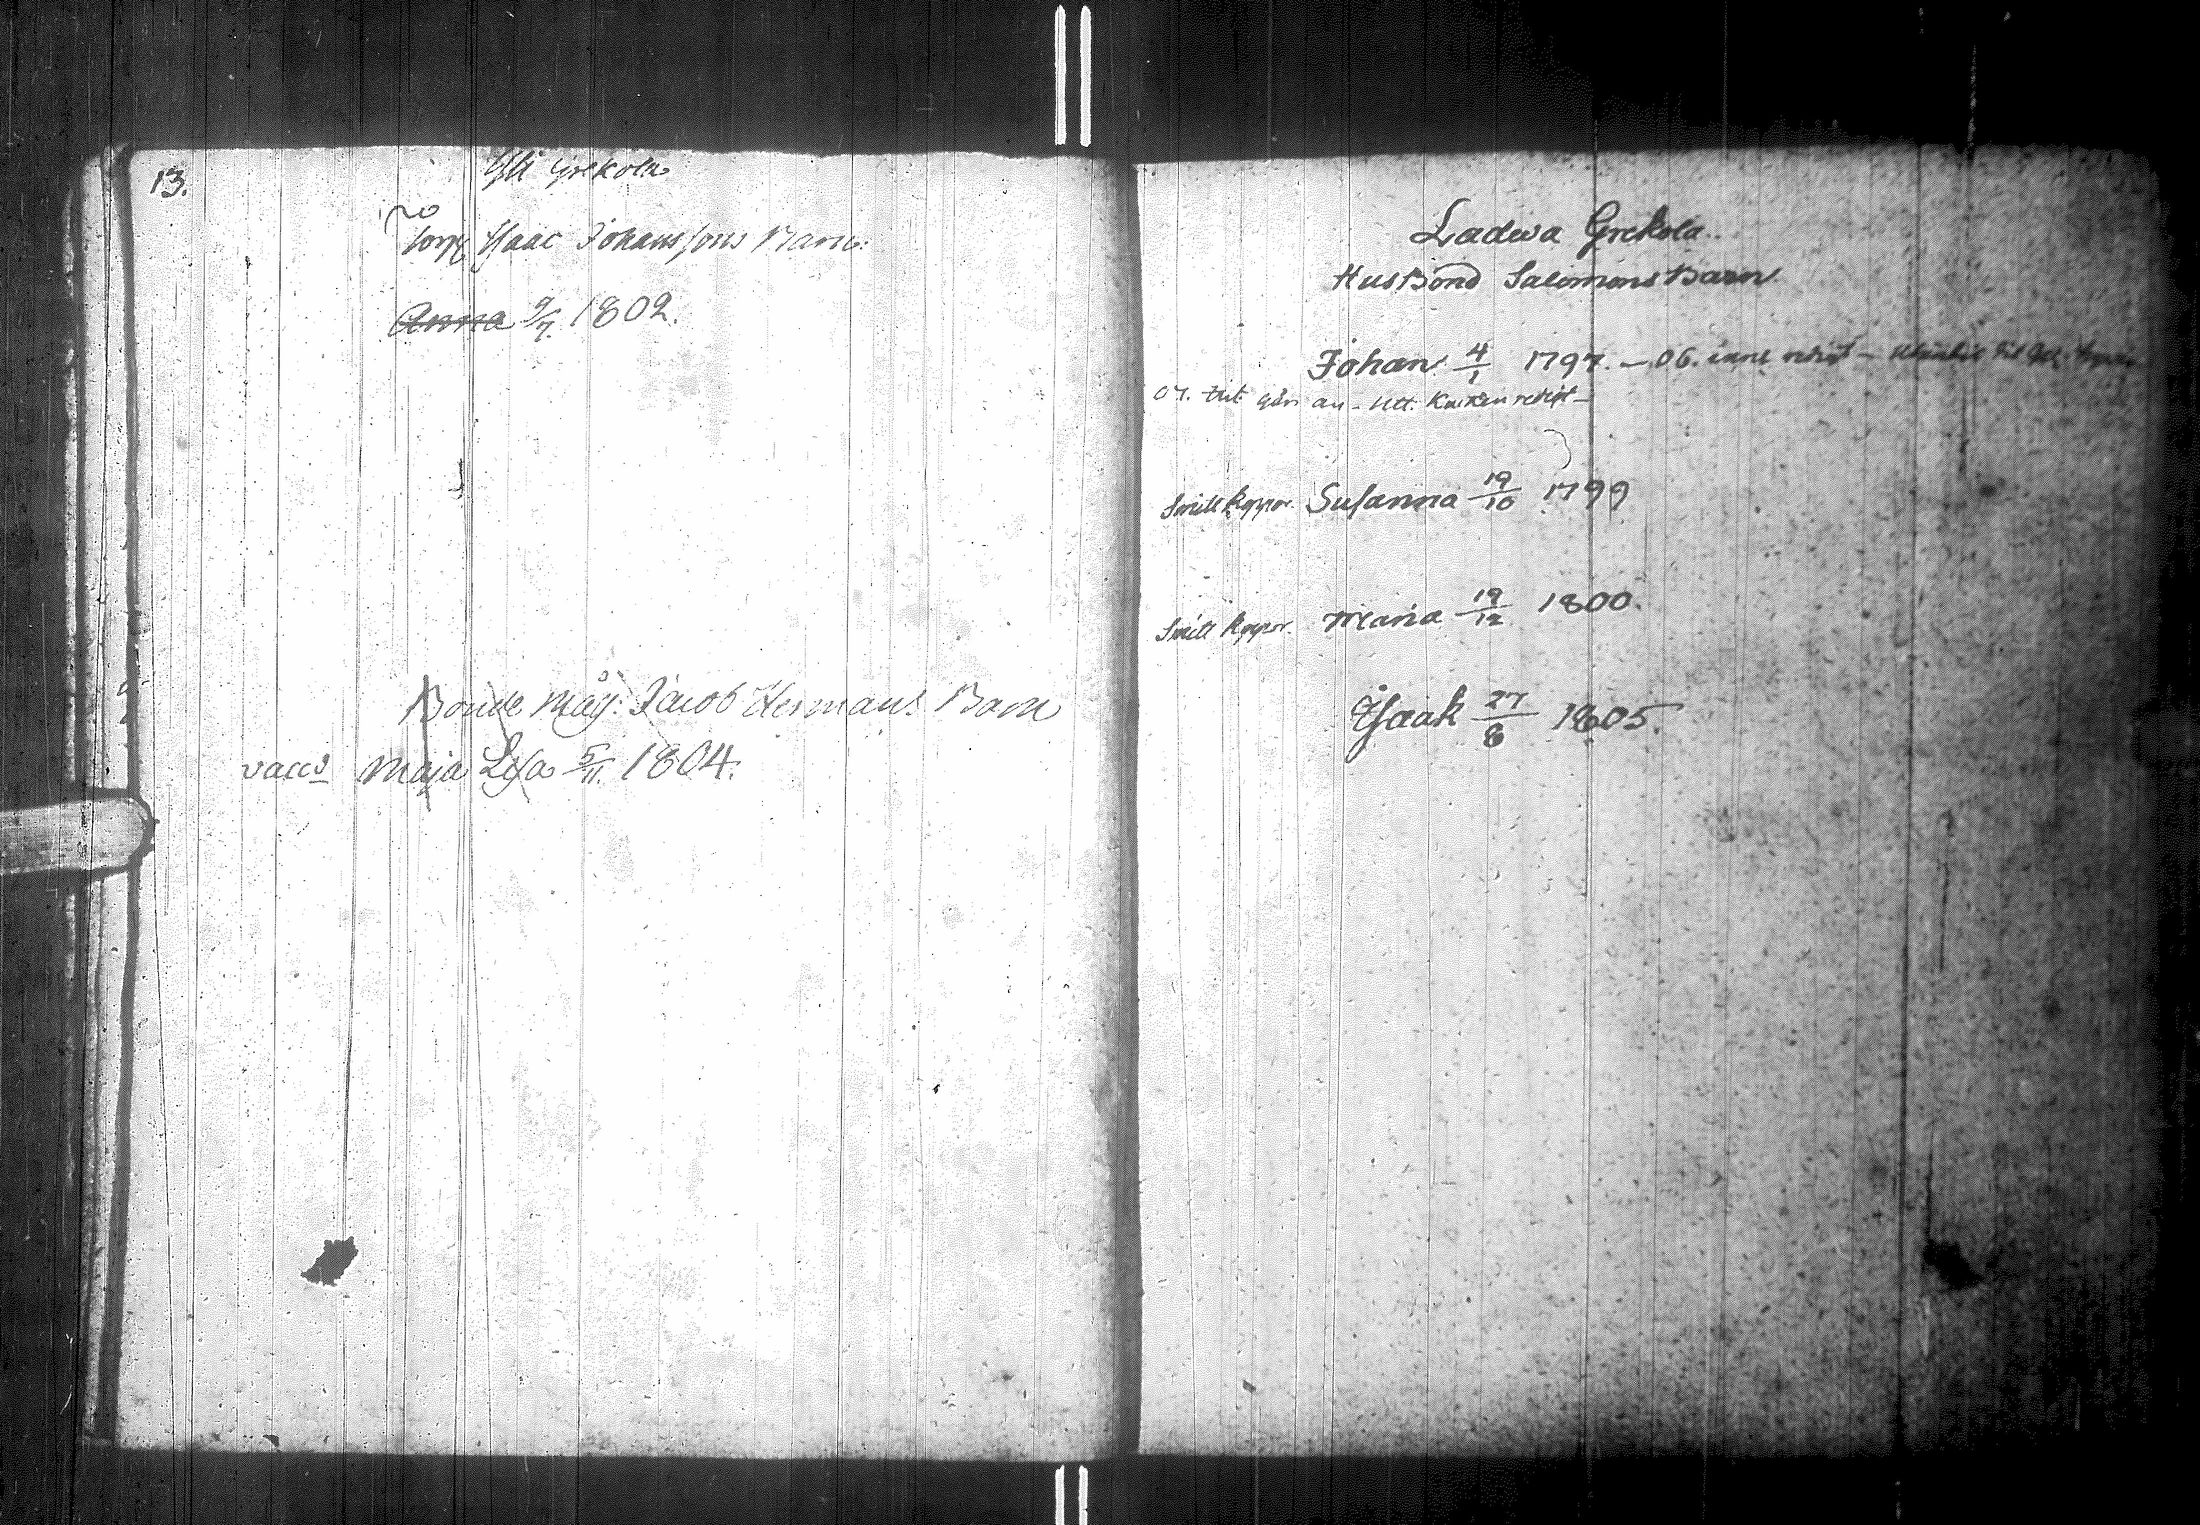 13.
Yli Grekola
Torp Isaac Johanssons Barn:
Anna 9/7 1802.
Bonde Måg: Jacob Hermans Barn
vacc: Maja Lisa 5/11. 1804.
Ladwa Grekola.
HusBond Salomons Barn
Johan 4/1 1797. – 06. inne
07. an
Smitt koppor. Susanna 19/10 1799
Smitt koppor. Maria 19/12 1800.
Isaak 27/8 1805.